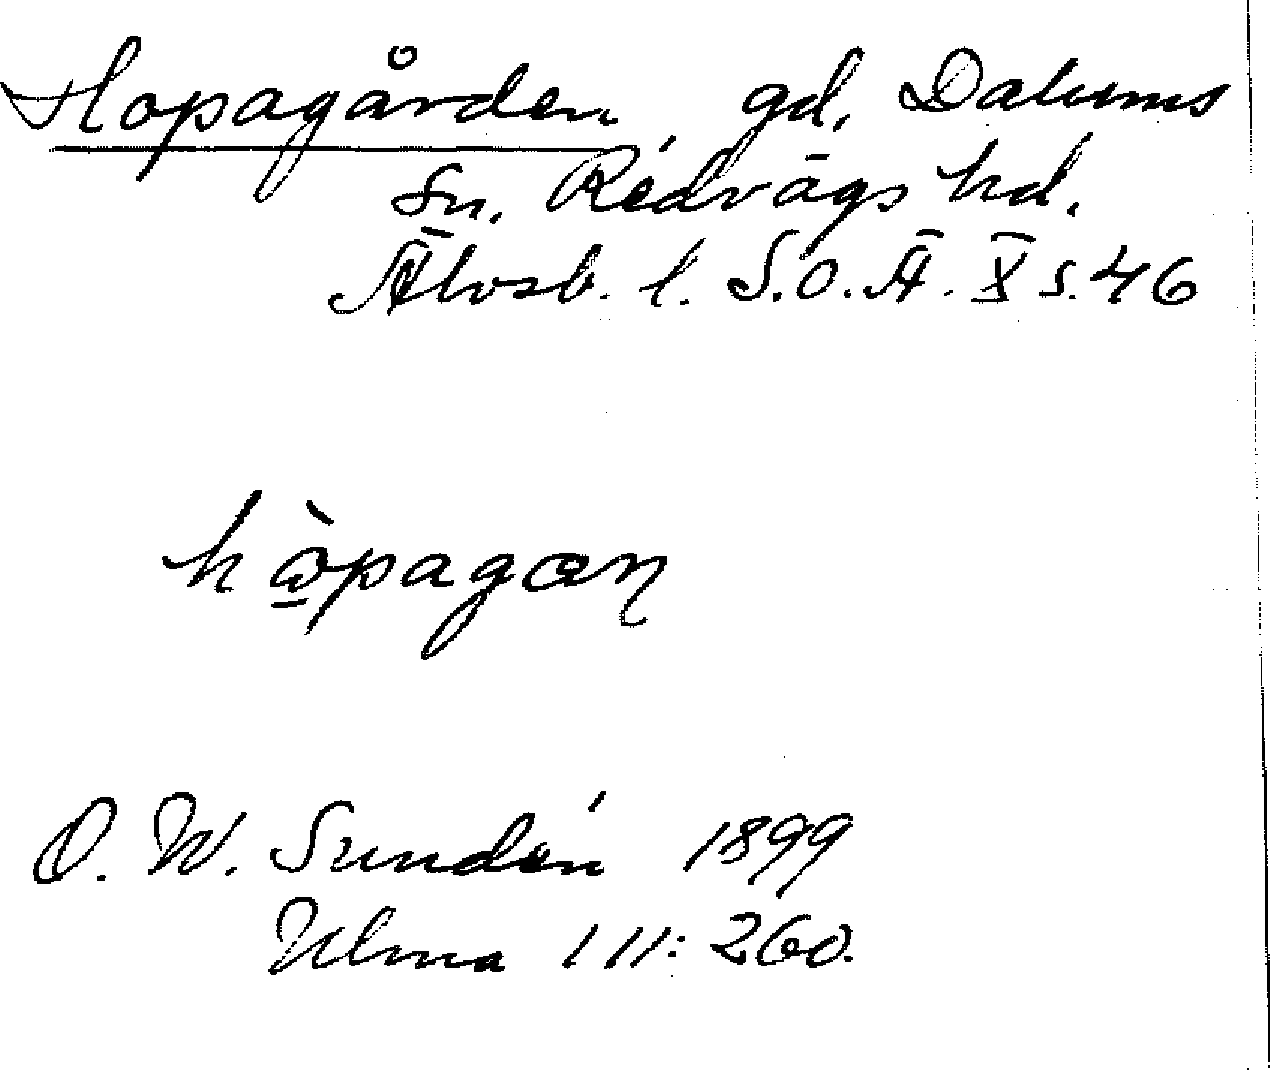 Hopagården, gd. Dalums
sn. Redvägs hd.
Älvsb. l. S.O.Ä. X s. 46
hɷ̀pagaŋ
O. W. Sundén 1899
Ulma 111:260.